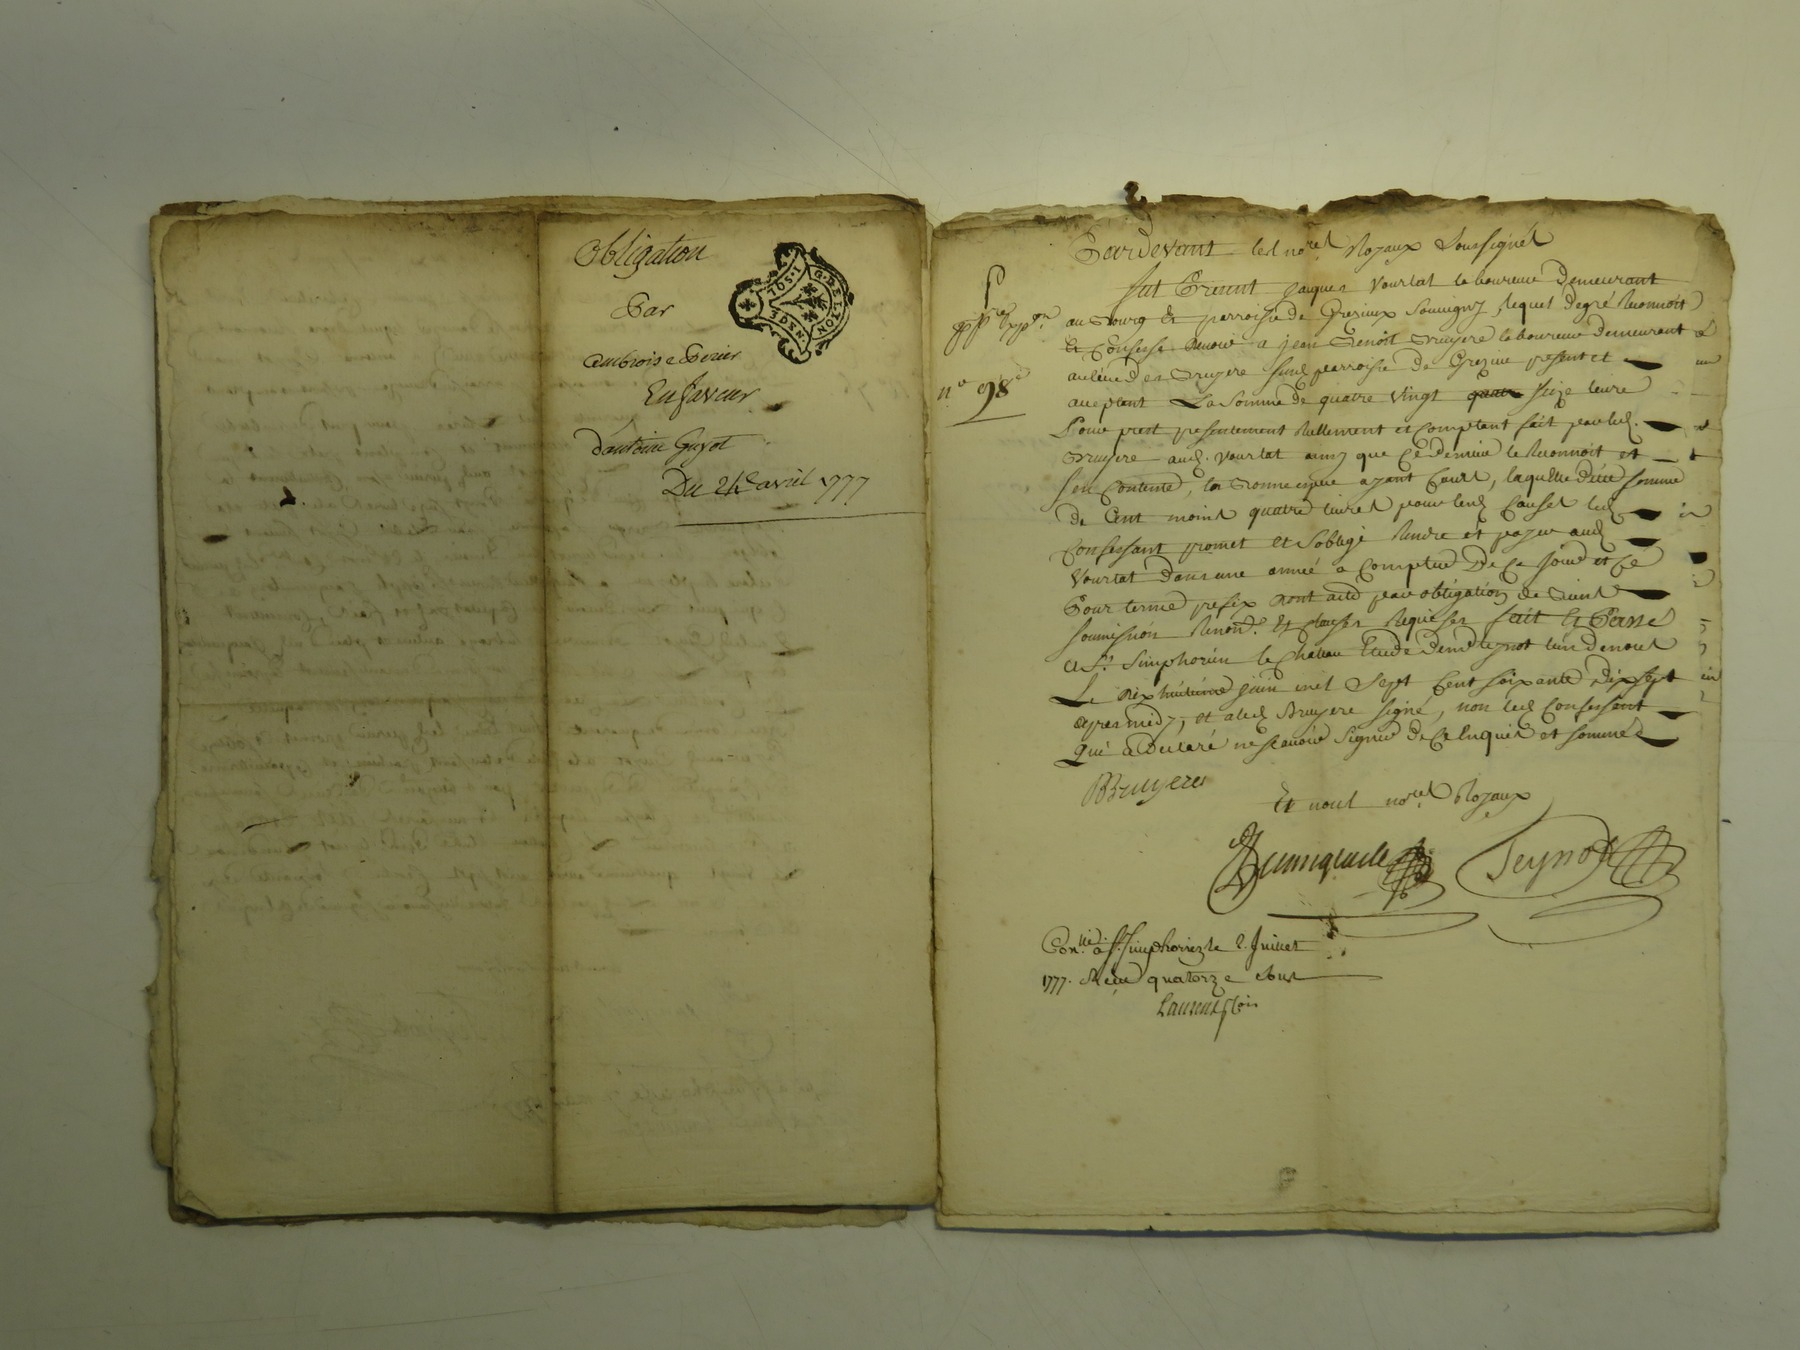 Obligation
Par
ambroise Perier
En faveur
d'antoine Guyot
Du 24e avril 1777
G. DELYON
2 SOLS
Pardevant les no.res Royaux Soussignés
fut Present jaques Vourlat laboureur demeurant
au Bourg & parroisse de Grezieux Souvigny, lequel de gré Reconnoit
Et Confesse devoir a jean Benoit Bruyere laboureur demeurant
au lieu des Bruyere susd. parroisse de Grezieu present et
acceptant La Somme de quatre vingt seize livre
Pour prest presentement Rellement et Comptant fait par led.
Bruyere aud. Vourlat ainsy que Ce dernier le Reconnoit et
s'en Contente, en Bonne espece ayant Court, laquelle ditte somme
de Cent moins quatre livres pour lesd. Causes led.
Confessant promet et s'oblige Rendre et payer aud.
Vourlat dans une année a Compter De Ce Jour et Ce
Pour terme prefix dont acte par obligation de Biens
soumission Renon. Et clauses Requises fait Et Passé
a St. Simphorien le Chateau Etude de me teynot l'un de nous
Le dix huitieme juin mil Sept Cent soixante dix sept
apres midy, et a led. Bruyere signé, non led. Confessant
Qui a Declaré ne scavoir signer de Ce Enquis et sommé
n.o 98
BBruyere
Et nous no.res Royaux
Teynot
Con.llé a St. Simphorien le 2. Juillet
1777. Receu quatorze sous